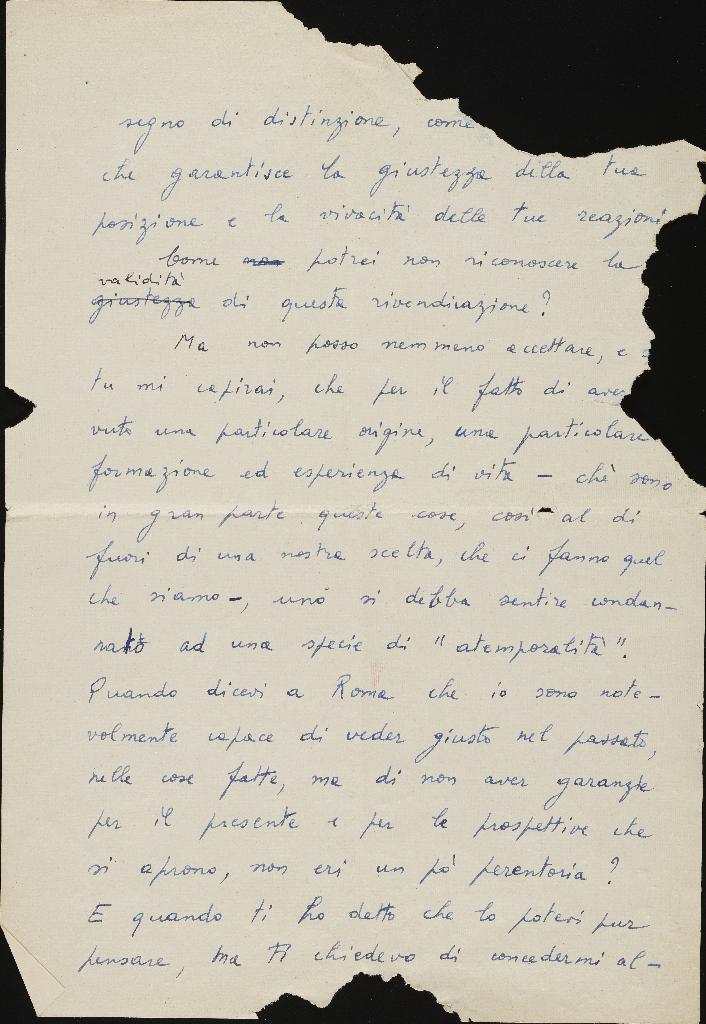 segno di distinzione, come
che garantisce la giustezza della tua
posizione e la vivacità delle tue reazioni
Come non potrei non riconoscere la
validità
giustezza di questa rivendicazione?
Ma non posso nemmeno accettare, e
tu mi capirai, che per il fatto di aver
vuto una particolare origine, una particolare
formazione ed esperienza di vita – chè sono
in gran parte queste cose, così al di
fuori di una nostra scelta, che ci fanno quel
che siamo –, uno si debba sentire condan-
nato ad una specie di "atemporalità".
Quando dicevi a Roma che io sono note-
volmente capace di veder giusto nel passato,
nelle cose fatte, ma di non aver garanzie
per il presente e per le prospettive che
si aprono, non eri un pò perentoria?
E quando ti ho detto che lo potevi pur
pensare, ma Ti chiedevo di concedermi al-